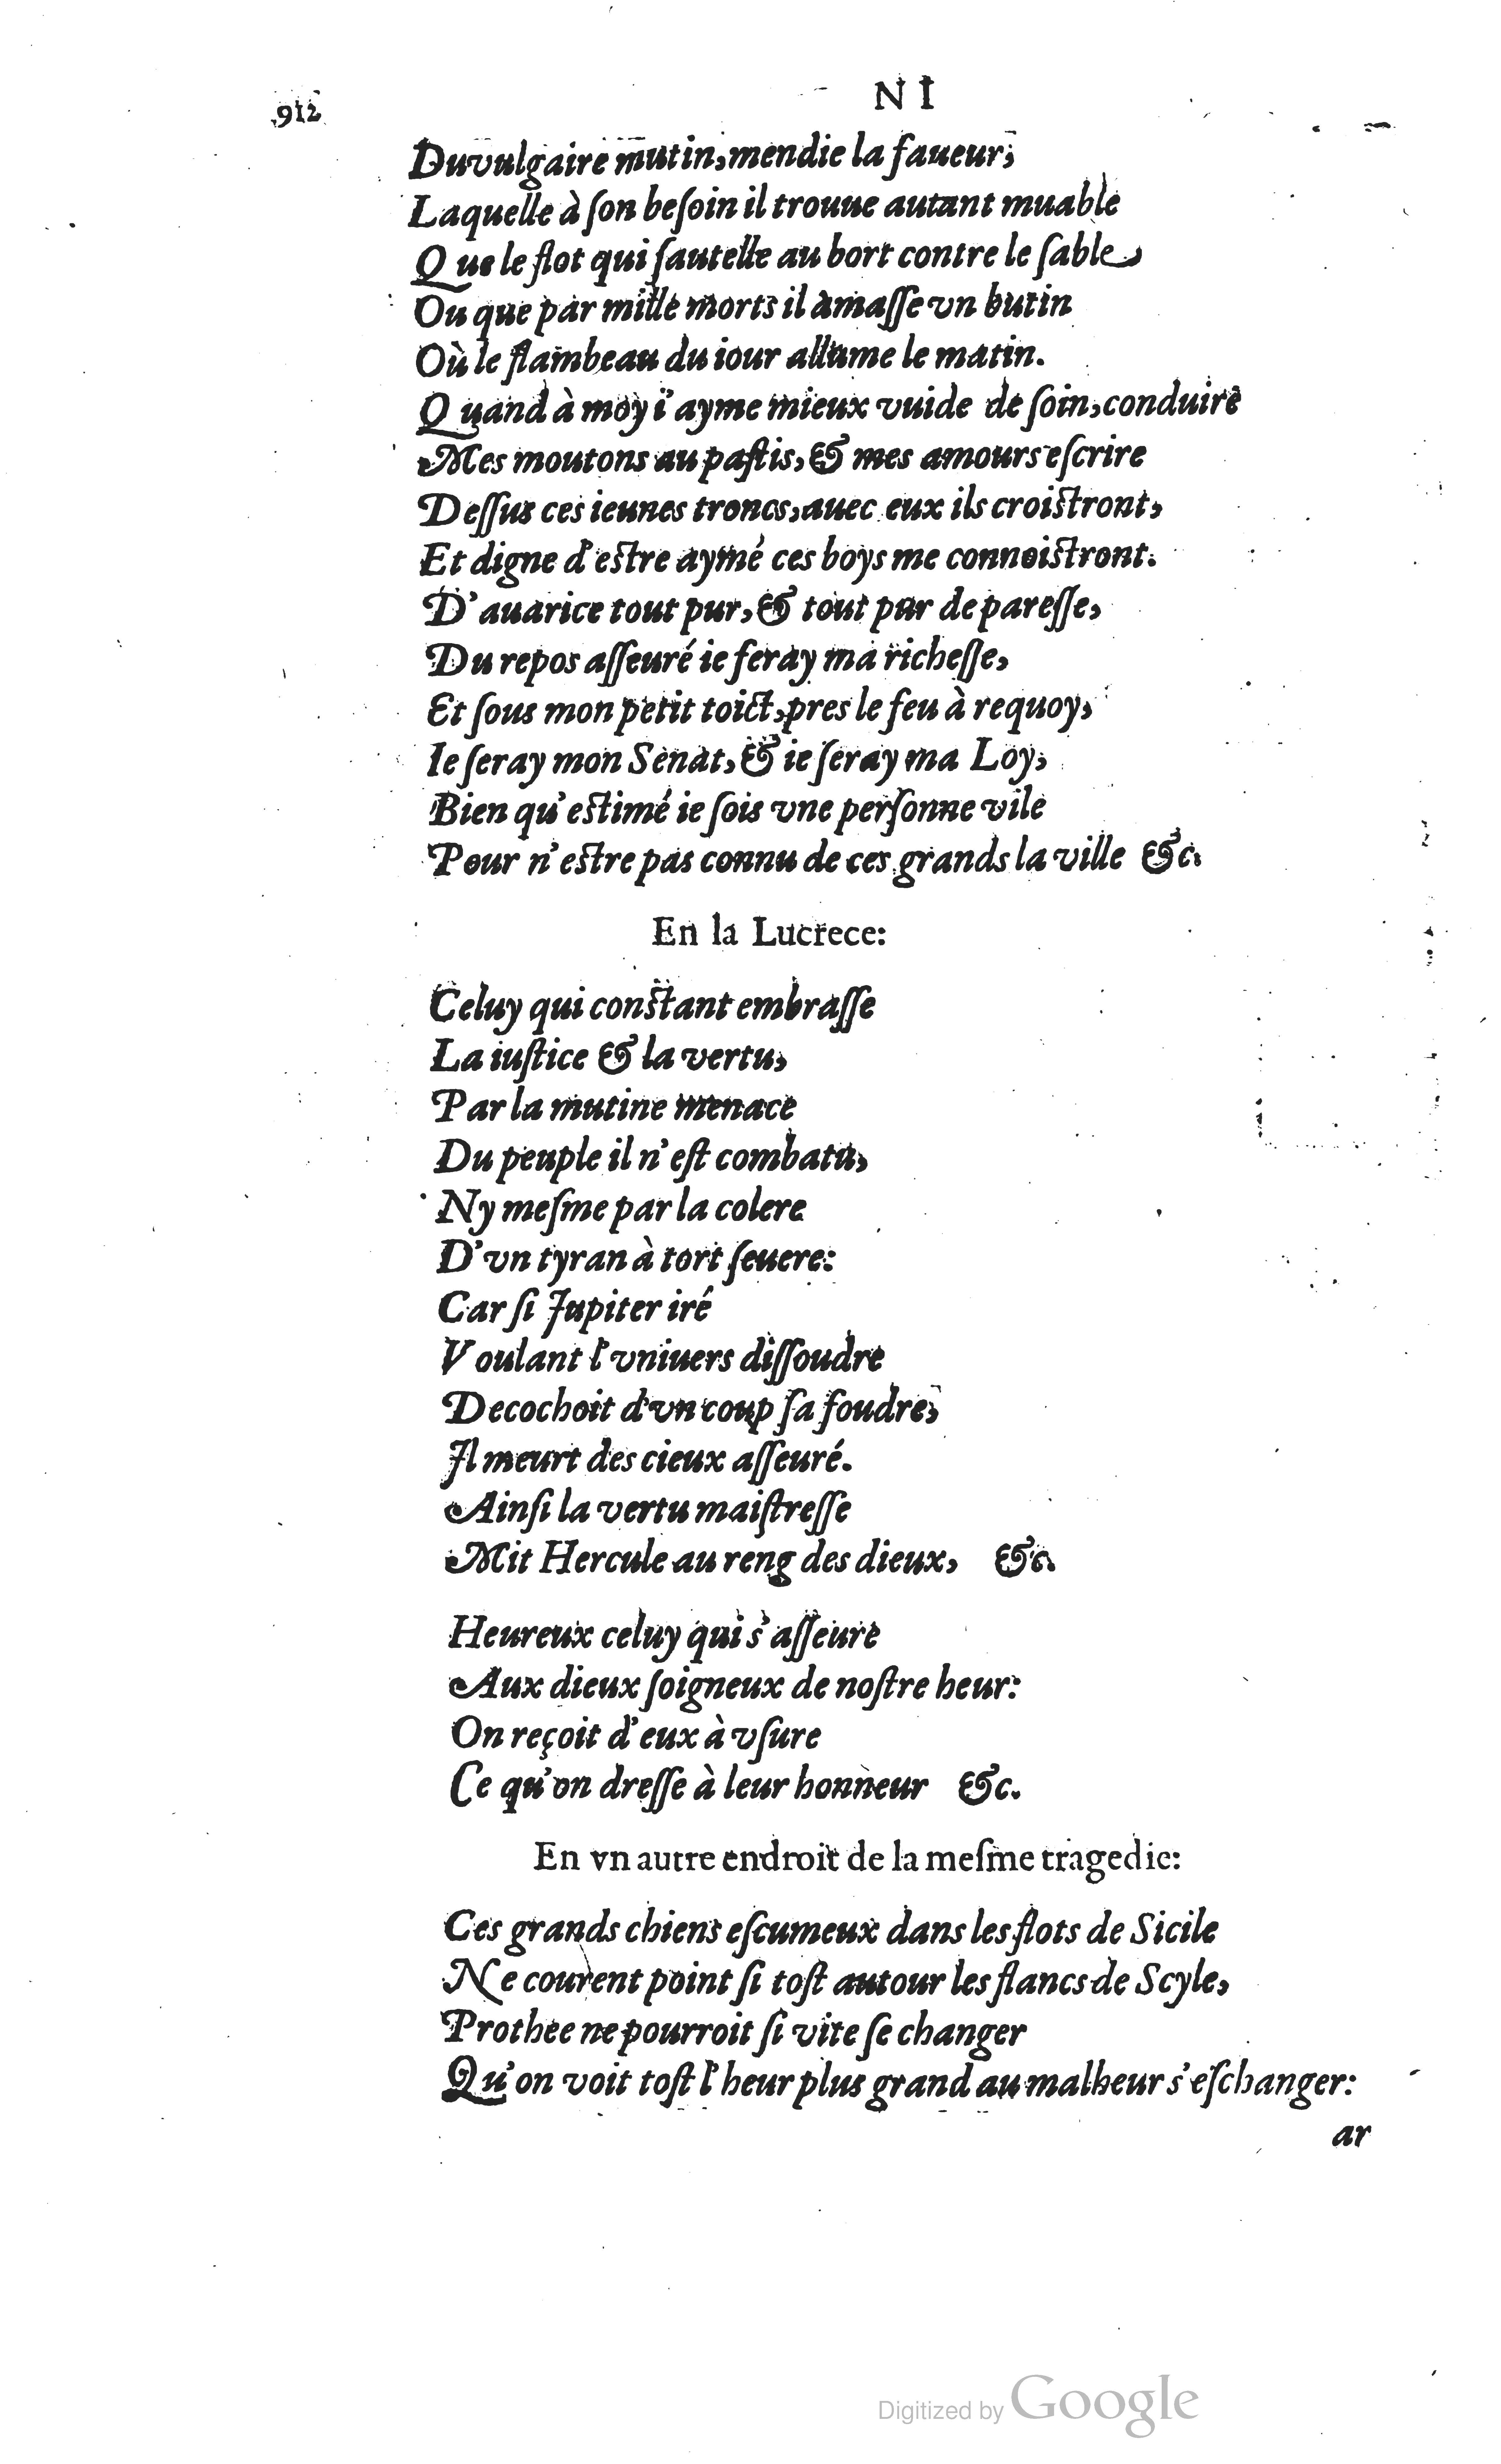 912
N I
Du vulgaire mutin, mendie la faueur,
Laquelle à ſon beſoin il trouue autant muable
Que le flot qui ſautelle au bort contre le ſable,
Ou que par mille morts il amaſſe vn butin
Où le flambeau du iour allume le matin.
Quand à moy i'ayme mieux vuide de ſoin, conduire
Mes moutons au paſtis, & mes amours eſcrire
Deſſus ces ieunes troncs, auec eux ils croiſtront,
Et digne d'eſtre aymé ces boys me connoiſtront.
D'auarice tout pur, & tout pur de pareſſe,
Du repos aſſeuré ie feray ma richeſſe,
Et ſous mon petit toict, pres le feu à requoy,
Ie ſeray mon Senat, & ie ſeray ma Loy,
Bien qu'eſtimé ie ſois vne perſonne vile
Pour n'eſtre pas connu de ces grands la ville &c.
En la Lucrece:
Celuy qui conſtant embraſſe
La iuſtice & la vertu,
Par la mutine menace
Du peuple il n'eſt combatu,
Ny meſme par la colere
D'vn tyran à tort ſeuere:
Car ſi Jupiter iré
Voulant l'vniuers diſſoudre
Decochoit d'vn coup ſa foudre,
Il meurt des cieux aſſeuré.
Ainſi la vertu maiſtreſſe
Mit Hercule au reng des dieux, &c.
Heureux celuy qui s'aſſeure
Aux dieux ſoigneux de noſtre heur:
On reçoit d'eux à vſure
Ce qu'on dreſſe à leur honneur &c.
En vn autre endroit de la meſme tragedie:
Ces grands chiens eſcumeux dans les flots de Sicile
Ne courent point ſi toſt autour les flancs de Scyle,
Prothee ne pourroit ſi vite ſe changer
Qu'on voit toſt l'heur plus grand au malheur s'eſchanger:
ar
Digitized by Google